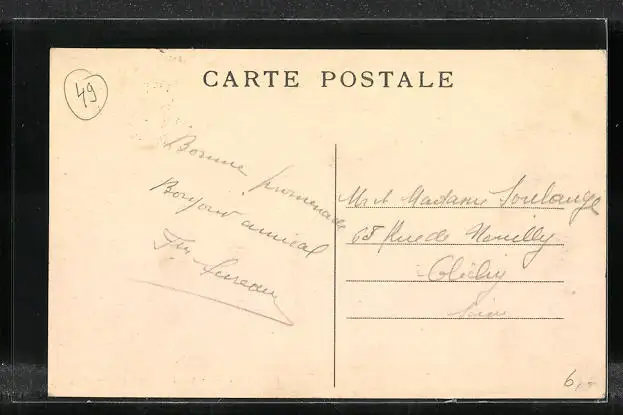 CARTE POSTALE
49
Bonne promenade
Bonjour amical
Mr et Madame Soulange
65 Rue de Neuilly
Clichy
Seine
6